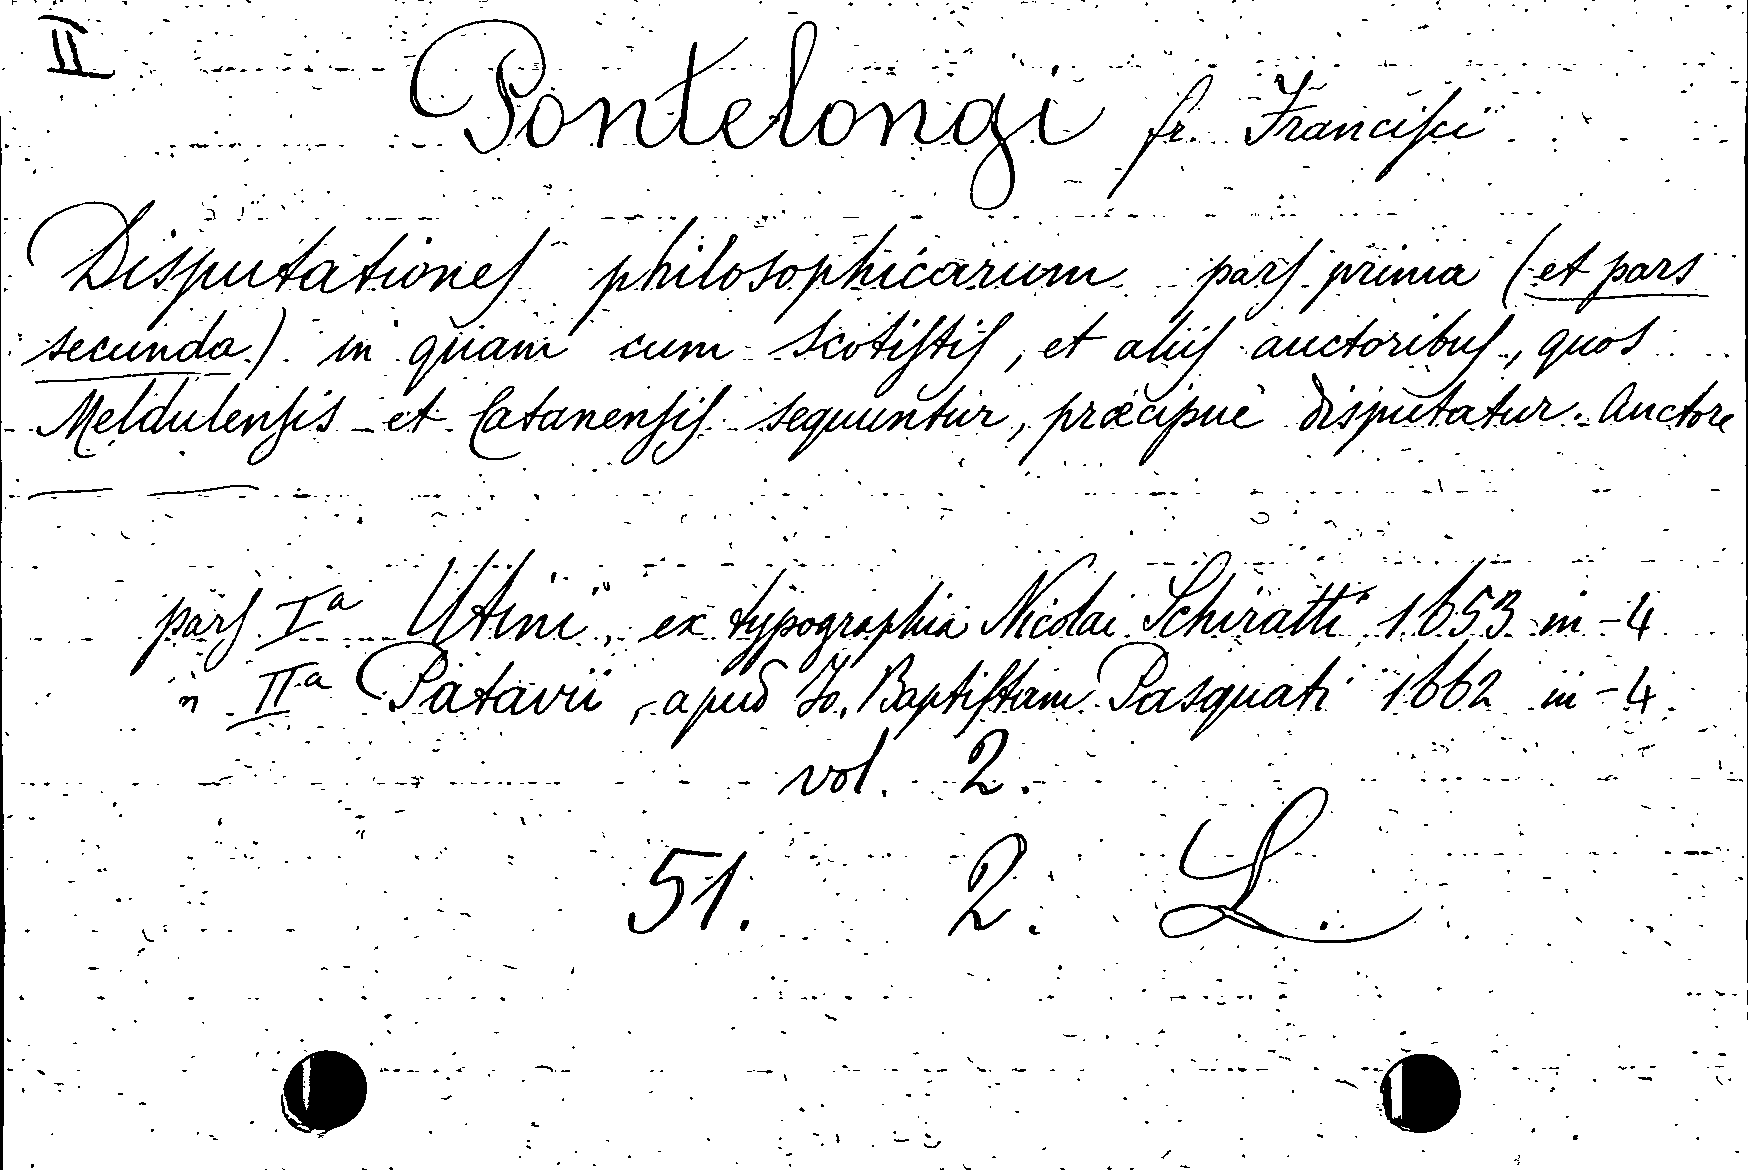 II
Pontelongi fr. Francisci
Disputationes philosophicarum pars prima (et pars
secunda) in quam cum scotistis, et aliis auctoribus, quos
Meldulensis et Catanensis sequuntur, præcipuè disputatur. Auctore
— —
pars Iª Utini, ex typographia Nicolai Schiratti 1653 in-4
" IIª Patavii, apud Jo. Baptistam Pasquati 1662 in-4
vol. 2.
51. 2. L.